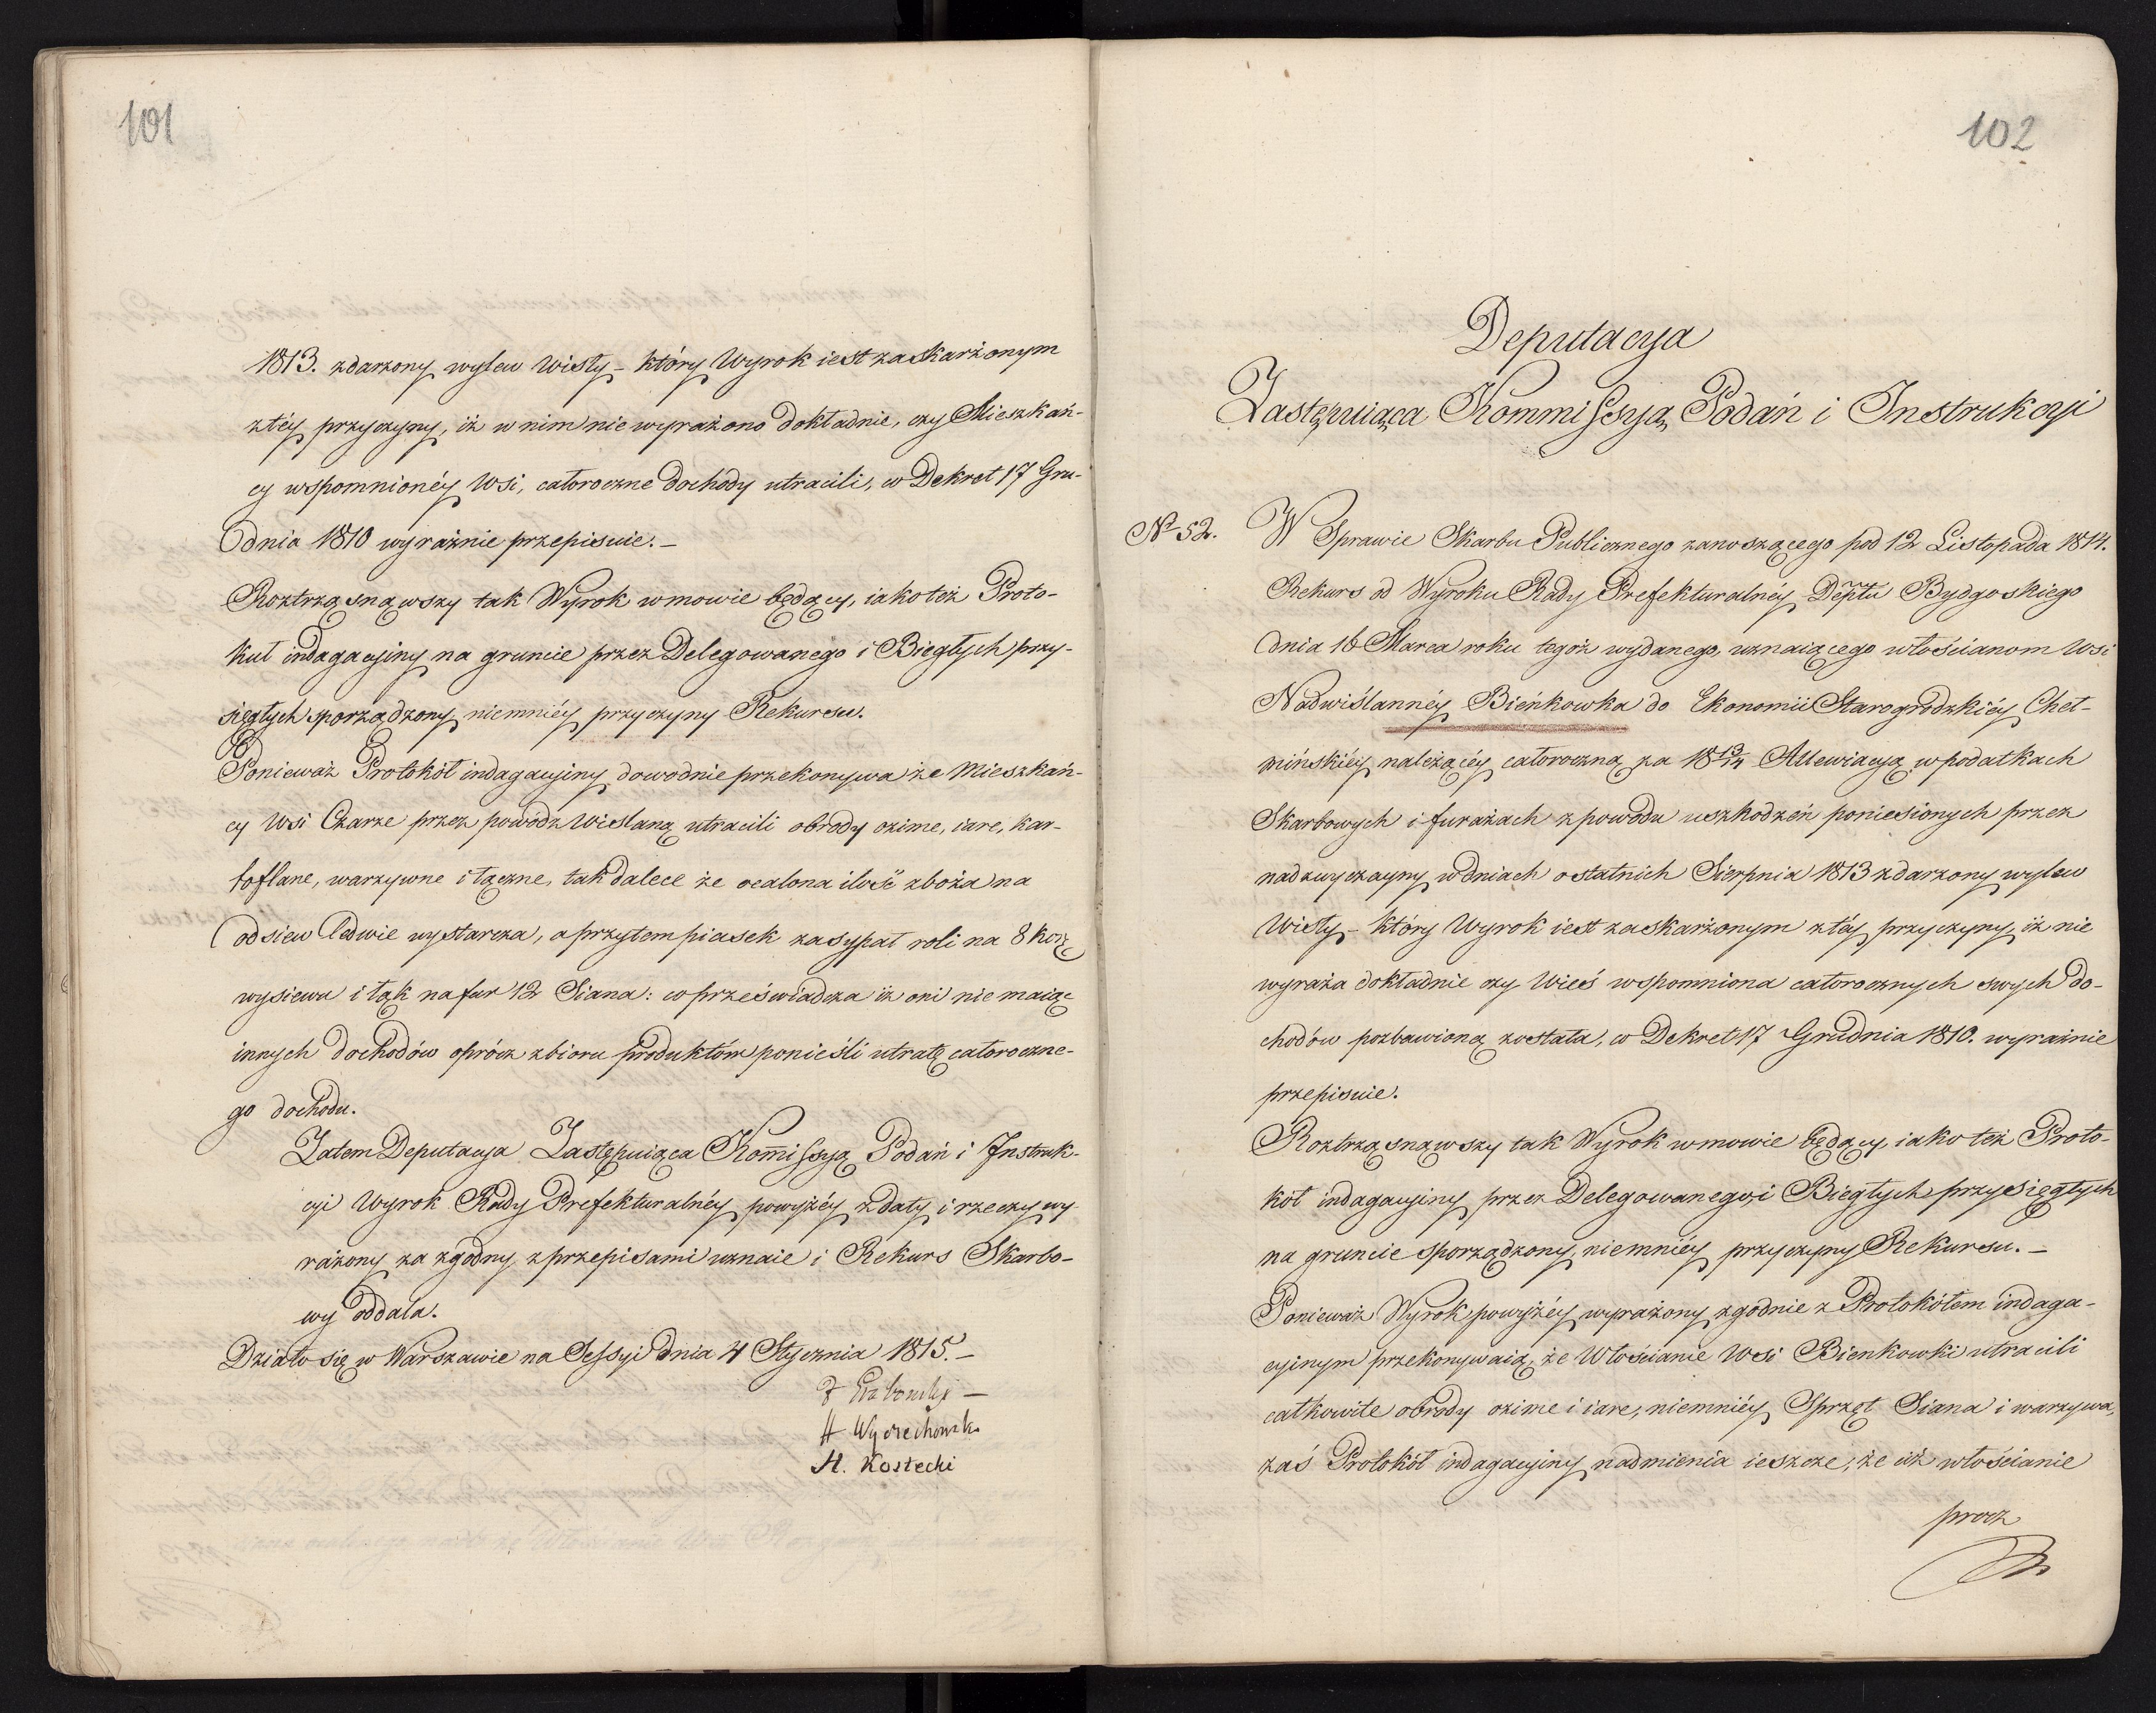 101
1813. zdarzony wylew Wisły – który Wyrok iest zaskarżonym
z téy przyczyny, iż w nim nie wyrażono dokładnie, czy Mieszkań-
cy wspomnionéy Wsi, całoroczne dochody utracili, co Dekret 17 Gru-
dnia 1810 wyraźnie przepisuie. –
Roztrząsnąwszy tak Wyrok w mowie będący, iako też Proto-
kuł indagacyiny na gruncie przez Delegowanego i Biegłych przy-
sięgłych sporządzony niemniéy przyczyny Rekursu.
Ponieważ Protokół indagacyiny dowodnie przekonywa że Mieszkań-
cy Wsi Czarze przez powódz Wislaną utracili obrody ozime, iare, kar-
toflane, warzywne i łączne, tak dalece że ocalona ilość zboża na
odsiew ledwie wystarcza, a przytem piasek zasypał roli na 8 korz
wysiewu i łąk na fur 12 Siana: co przeświadcza iż oni nie maiąc
innych dochodów oprócz zbioru produktów ponieśli utratę całoroczne-
go dochodu.
Zatem Deputacya Zastępuiąca Kom̄issyą Podań i Instruk-
cyi Wyrok Rady Prefekturalnéy powyżéy z daty i rzeczy wy-
rażony za zgodny z przepisami uznaie i Rekurs Skarbo-
wy oddala.
Działo się w Warszawie na Sessyi dnia 4 Stycznia 1815. –
H Wyczechowski
A. Kostecki
102
Deputacya
Zastępuiąca Kommissyą Podań i Instrukcyi
No 52. W Sprawie Skarbu Publicznego zanoszącego pod 12 Listopada 1814.
Rekurs od Wyroku Rady Prefekturalnéy Deptu Bydgoskiego
dnia 16 Marca roku tegoż wydanego, uznaiącego włościanom Wsi
Nadwiślannéy Bieńkowka do Ekonomii Starogrodzkiéy Cheł-
mińskiéy należącéy całoroczną za 1813/14 Allewiacyą w podatkach
Skarbowych i furażach z powodu uszkodzeń poniesionych przez
nadzwyczayny w dniach ostatnich Sierpnia 1813 zdarzony wylew
Wisły – który Wyrok iest zaskarżonym z téy przyczyny, iż nie
wyraża dokładnie czy Wieś wspomniona całorocznych swych do-
chodów pozbawioną została, co Dekret 17 Grudnia 1810. wyraźnie
przepisuie.
Roztrząsnąwszy tak Wyrok w mowie będący, iako też Proto-
kół indagacyiny przez Delegowanego i Biegłych przysięgłych
na gruncie sporządzony, niemniéy przyczyny Rekursu. –
Ponieważ Wyrok powyżéy wyrażony zgodnie z Protokółem indaga-
cyinym przekonywaią, że Włościanie Wsi Bienkowki utracili
całkowite obrody ozime i iare, niemniéy Sprzęt Siana i warzywa,
zaś Protokół indagacyiny nadmienia ieszcze, że ciż włościanie
procz